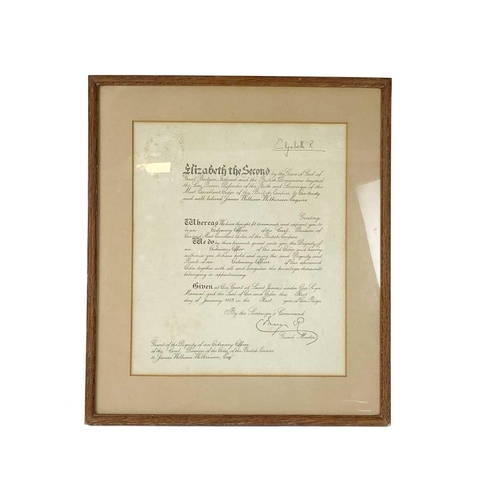 Elizabeth R
Elizabeth the Second, by the Grace of God of
Great Britain, Ireland and the British Dominions beyond
the Seas Queen, Defender of the Faith and Sovereign of the
Most Excellent Order of the British Empire to Our trusty
and well beloved James William Wilkinson Esquire
Greeting
Whereas We have thought fit to nominate and appoint you to
be an Ordinary Officer of the Civil Division of
Our said Most Excellent Order of the British Empire
We do by these presents grant unto you the Dignity of
an Ordinary Officer of Our said Order and hereby
authorise you to have hold and enjoy the said Dignity and
Rank of an Ordinary Officer of Our aforesaid
Order together with all and singular the privileges thereunto
belonging or appertaining.
Given at Our Court of Saint James's under Our Sign
Manual and the Seal of Our said Order this First
day of January in the year of Our Reign
By the Sovereign's Command.
Grand Master
Grant of the Dignity of an Ordinary Officer
of the Civil Division of the Order of the British Empire
to James William Wilkinson, Esq